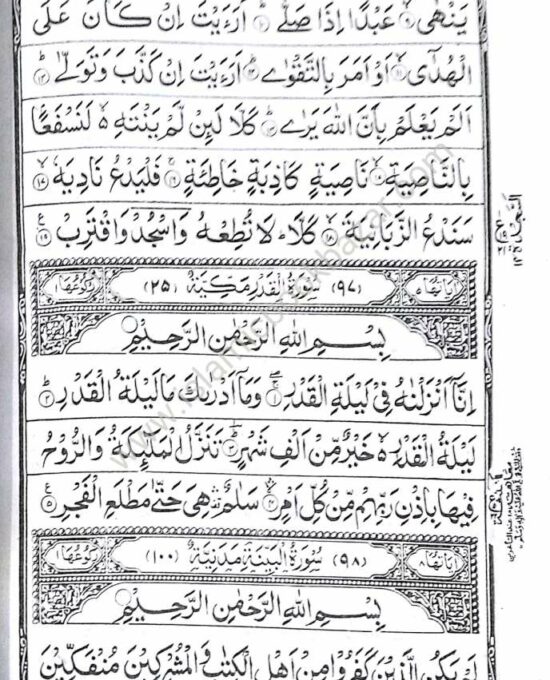 يَنْهٰى ۙ۹ عَبْدًا اِذَا صَلّٰى ؕ۱۰ اَرَءَيْتَ اِنْ كَانَ عَلَى
الْهُدٰٓى ۙ۱۱ اَوْ اَمَرَ بِالتَّقْوٰى ؕ۱۲ اَرَءَيْتَ اِنْ كَذَّبَ وَتَوَلّٰى ؕ۱۳
اَلَمْ يَعْلَمْ بِاَنَّ اللّٰهَ يَرٰى ؕ۱۴ كَلَّا لَئِنْ لَّمْ يَنْتَهِ ۙ۵ لَنَسْفَعًۢا
بِالنَّاصِيَةِ ۙ۱۵ نَاصِيَةٍ كَاذِبَةٍ خَاطِئَةٍ ۚ۱۶ فَلْيَدْعُ نَادِيَهٗ ۙ۱۷
سَنَدْعُ الزَّبَانِيَةَ ۙ۱۸ كَلَّا ؕ لَا تُطِعْهُ وَاسْجُدْ وَاقْتَرِبْ ۱۹
اٰيَاتُهَا ۵ (۹۷) سُوْرَةُ الْقَدْرِ مَكِّيَّةٌ (۲۵) رُكُوْعُهَا ۱
بِسْمِ اللّٰهِ الرَّحْمٰنِ الرَّحِيْمِ
اِنَّاۤ اَنْزَلْنٰهُ فِيْ لَيْلَةِ الْقَدْرِ ۚ۱ وَمَاۤ اَدْرٰىكَ مَا لَيْلَةُ الْقَدْرِ ؕ۲
لَيْلَةُ الْقَدْرِ ۙ۵ خَيْرٌ مِّنْ اَلْفِ شَهْرٍ ؕ۳ تَنَزَّلُ الْمَلٰٓئِكَةُ وَالرُّوْحُ
فِيْهَا بِاِذْنِ رَبِّهِمْ ۚ مِنْ كُلِّ اَمْرٍ ۙ۴ سَلٰمٌ ۛ هِيَ حَتّٰى مَطْلَعِ الْفَجْرِ ۵
اٰيَاتُهَا ۸ (۹۸) سُوْرَةُ الْبَيِّنَةِ مَدَنِيَّةٌ (۱۰۰) رُكُوْعُهَا ۱
بِسْمِ اللّٰهِ الرَّحْمٰنِ الرَّحِيْمِ
لَمْ يَكُنِ الَّذِيْنَ كَفَرُوْا مِنْ اَهْلِ الْكِتٰبِ وَالْمُشْرِكِيْنَ مُنْفَكِّيْنَ